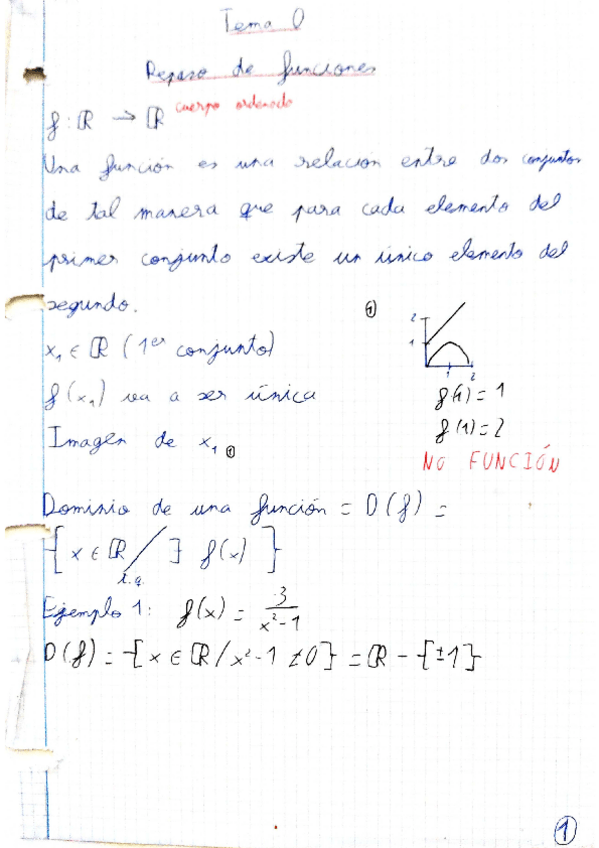 Tema 0
Repaso de funciones
f: ℝ → ℝ cuerpo ordenado
Una función es una relación entre dos conjuntos
de tal manera que para cada elemento del
primer conjunto existe un único elemento del
segundo.
①
2
1
1 2
x₁ ∈ ℝ (1er conjunto)
f(x₁) va a ser única
f(1) = 1
Imagen de x₁ ①
f(1) = 2
NO FUNCIÓN
Dominio de una función = D(f) =
{x ∈ ℝ / ∃ f(x)}
t.q.
Ejemplo 1: f(x) = 3/(x²-1)
D(f) = {x ∈ ℝ / x²-1 ≠ 0} = ℝ - {±1}
1